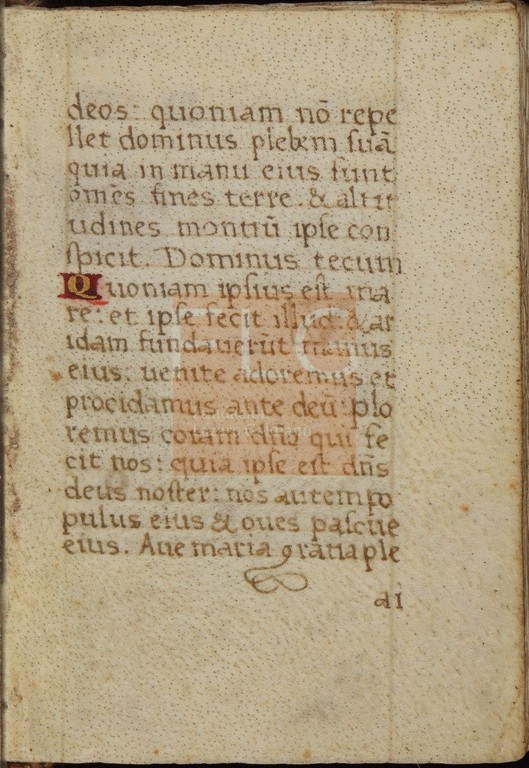 deos: quoniam nō repe
llet dominus plebem suā
quia in manu eius sunt
omēs fines terre. & altit
udines montiū ipse con
spicit. Dominus tecum
Quoniam ipsius est ma
re: et ipse fecit illud: & ar
idam fundaverūt manus
eius: uenite adoremus et
procidamus ante deū: plo
remus coram dño qui fe
cit nos: quia ipse est dñs
deus noster: nos autem po
pulus eius & oues pascue
eius. Aue maria gratia ple